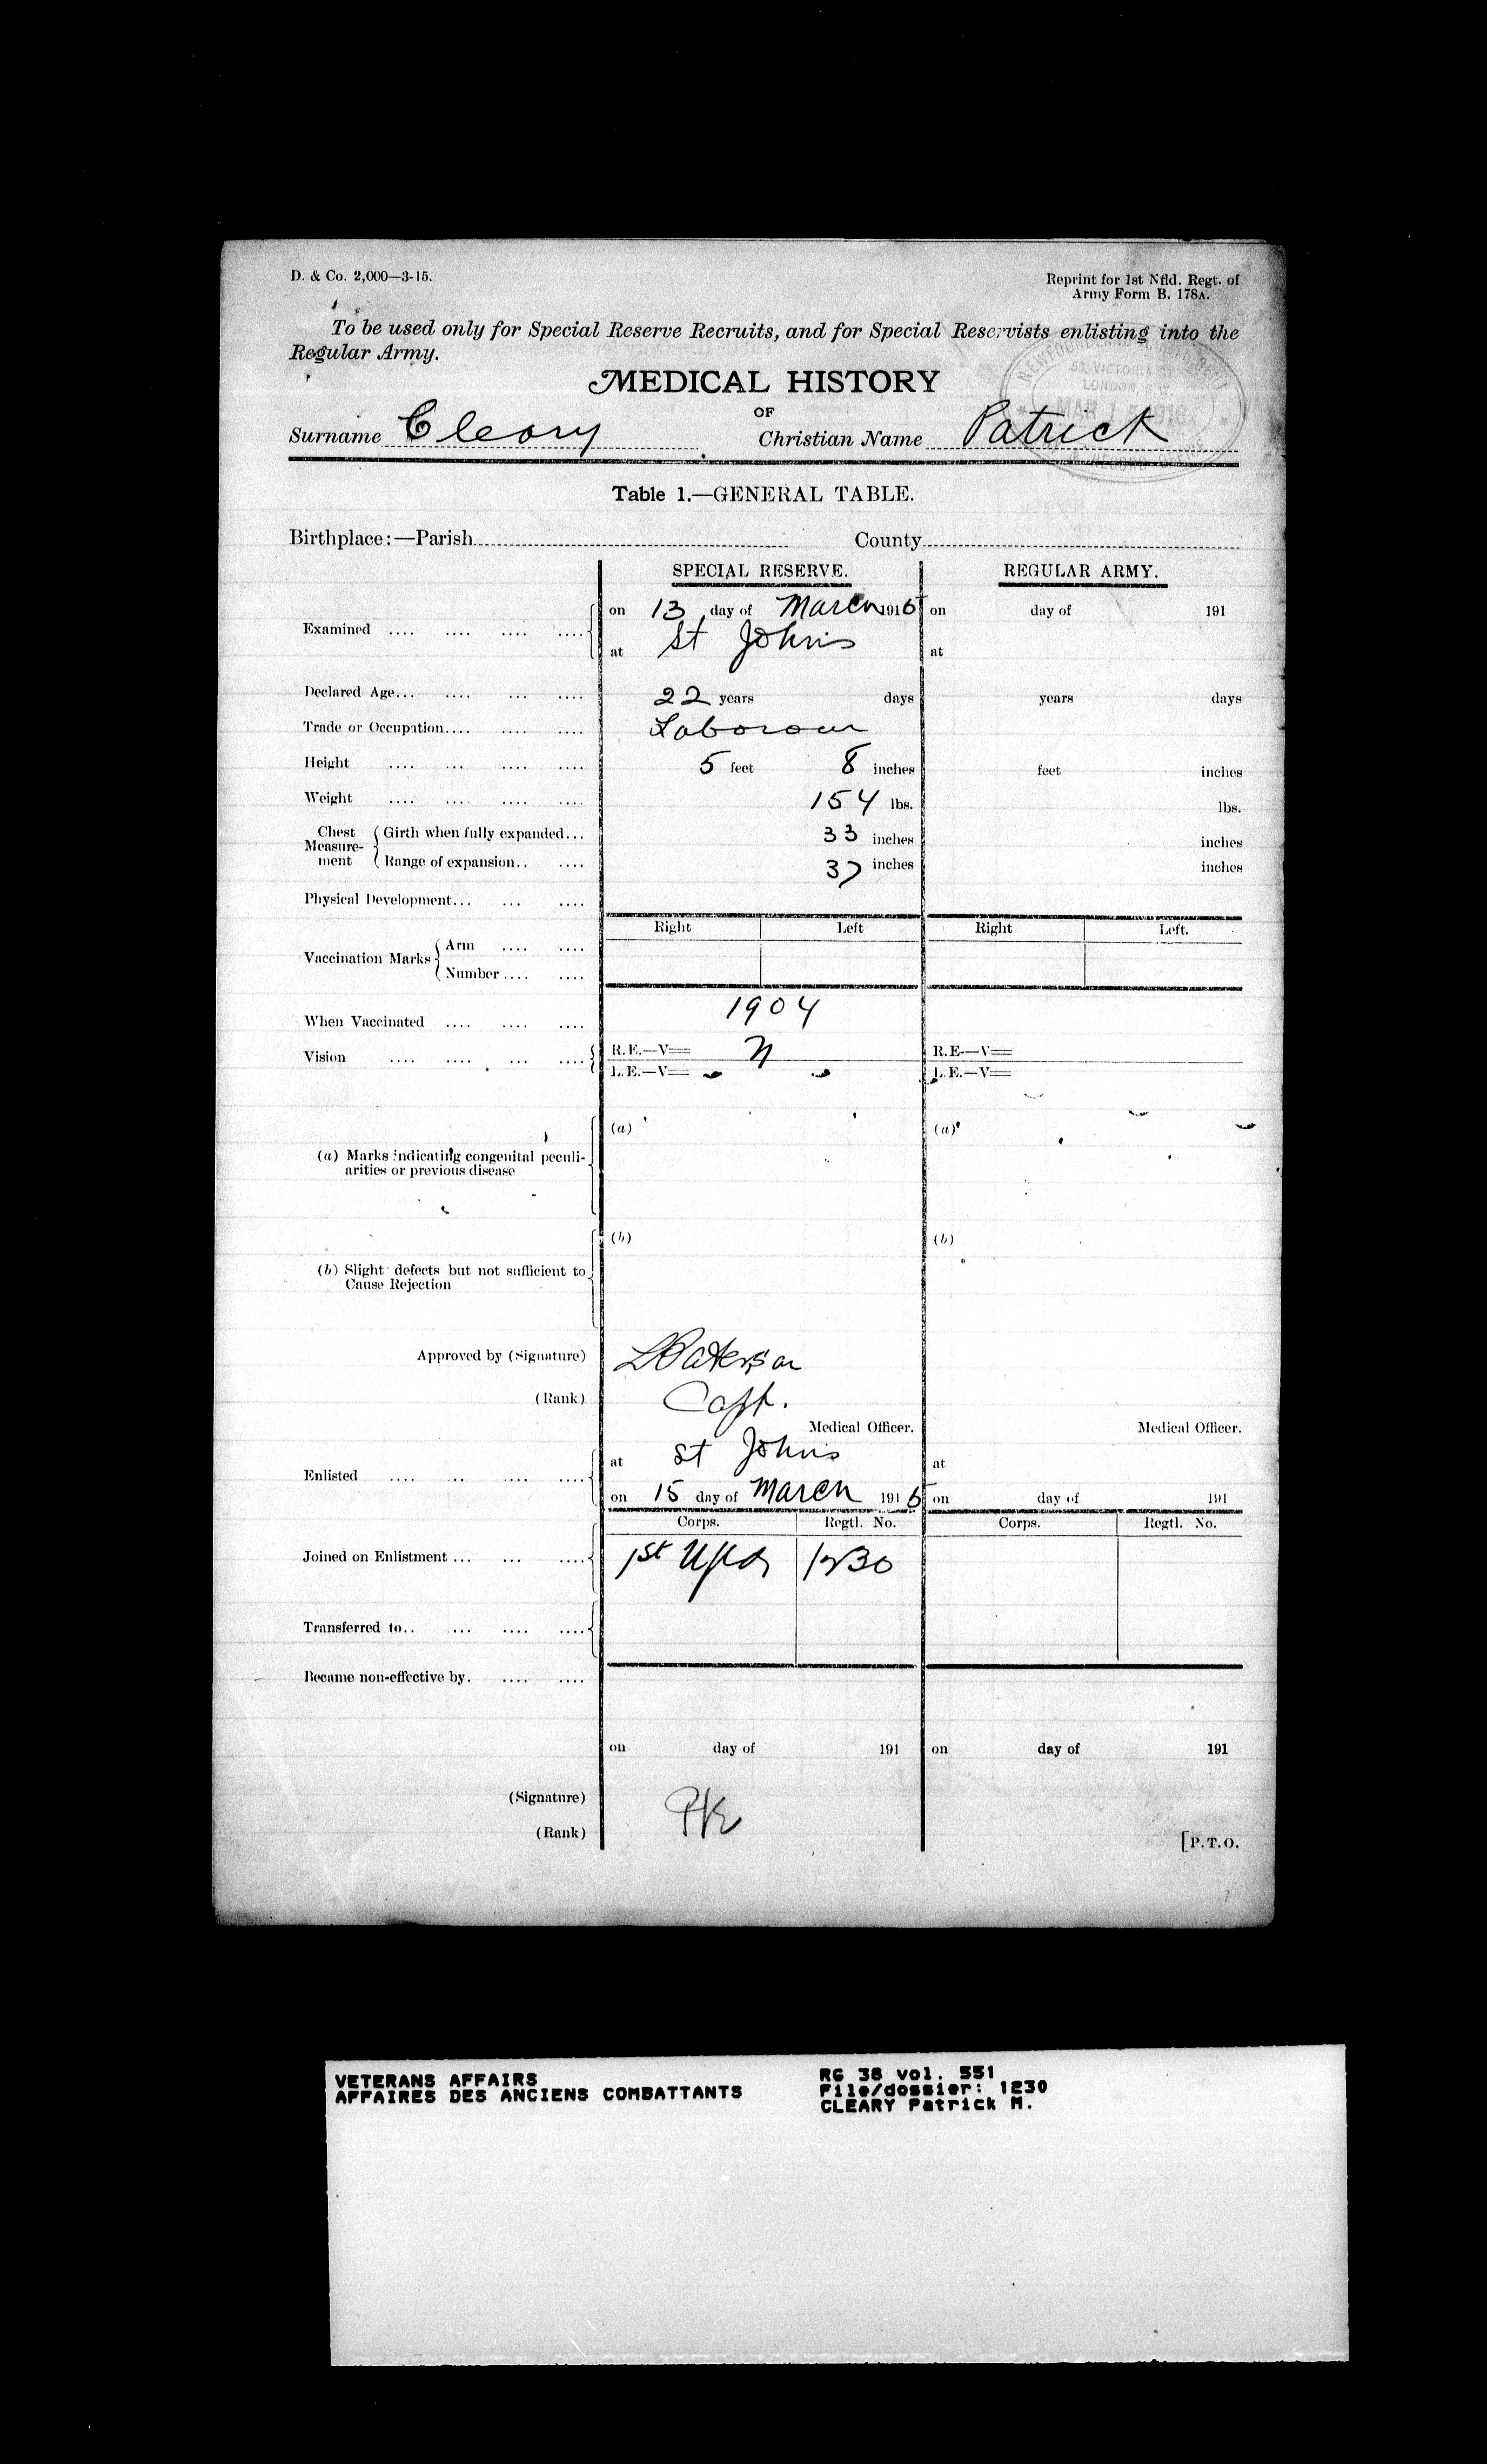 D. & Co. 2,000—3-15.
Reprint for 1st Nfld. Regt. of
Army Form B. 178A.
To be used only for Special Reserve Recruits, and for Special Reservists enlisting into the
Regular Army.
MEDICAL HISTORY
OF
Surname Cleary Christian Name Patrick
53, VICTORIA ST
LONDON, S.W.
MAR 1 1916
RECORD OFFICE
Table 1.—GENERAL TABLE.
Birthplace:—Parish County
SPECIAL RESERVE. REGULAR ARMY.
Examined .... .... .... .... on 13 day of March 1915 on day of 191
at St Johns at
Declared Age... .... ... .... 22 years days years days
Trade or Occupation.... .... .... Laborour
Height .... ... .... .... 5 feet 8 inches feet inches
Weight .... .... .... .... 154 lbs. lbs.
Chest Measurement Girth when fully expanded... 33 inches inches
Range of expansion.. .... 37 inches inches
Physical Development... ... ....
Right Left Right Left.
Vaccination Marks Arm .... ....
Number .... ....
When Vaccinated .... .... .... 1904
Vision .... .... ... .... R.E.—V= N R.E.—V=
L.E.—V= L.E.—V=
(a) (a)
(a) Marks indicating congenital peculi-
arities or previous disease
(b) (b)
(b) Slight defects but not sufficient to
Cause Rejection
Approved by (Signature) Paterson
(Rank) Capt.
Medical Officer. Medical Officer.
at St Johns at
Enlisted .... .. .... ....
on 15 day of March 1915 on day of 191
Corps. Regtl. No. Corps. Regtl. No.
Joined on Enlistment ... ... .... 1st Nfld 1230
Transferred to.. ... .... ....
Became non-effective by. .... ....
on day of 191 on day of 191
(Signature)
(Rank) Pte
[P.T.O.
VETERANS AFFAIRS
AFFAIRES DES ANCIENS COMBATTANTS
RG 38 vol. 551
File/dossier: 1230
CLEARY Patrick M.